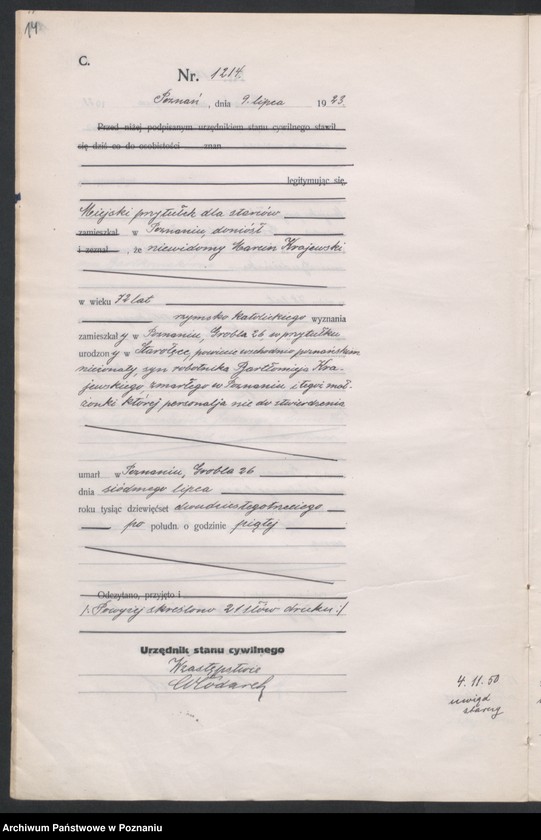 14
C.
Nr. 1214.
Poznań, dnia 9. lipca 1923.
Przed niżej podpisanym urzędnikiem stanu cywilnego stawił
się dziś co do osobistości znan
legitymując się,
Miejski przytułek dla starców
zamieszkał w Poznaniu, doniósł
i zeznał, że niewidomy Marcin Krajewski
w wieku 72 lat
rzymsko katolickiego wyznania
zamieszkały w Poznaniu, Grobla 26 w przytułku
urodzony w Starołęce, powiecie wschodnio poznańskim
nieżonaty, syn robotnika Bartłomieja Kra-
jewskiego, zmarłego w Poznaniu i tegoż mał-
żonki której personalja nie do stwierdzenia
umarł w Poznaniu, Grobla 26
dnia siódmego lipca
roku tysiąc dziewięćset dwudziestegotrzeciego
po połudn. o godzinie piątej
Odczytano, przyjęto i
/: Powyżej skreślono 21 słów druku :/
Urzędnik stanu cywilnego
W zastępstwie
Włodarek
4. 11. 50
uwiąd
starczy
Archiwum Państwowe w Poznaniu